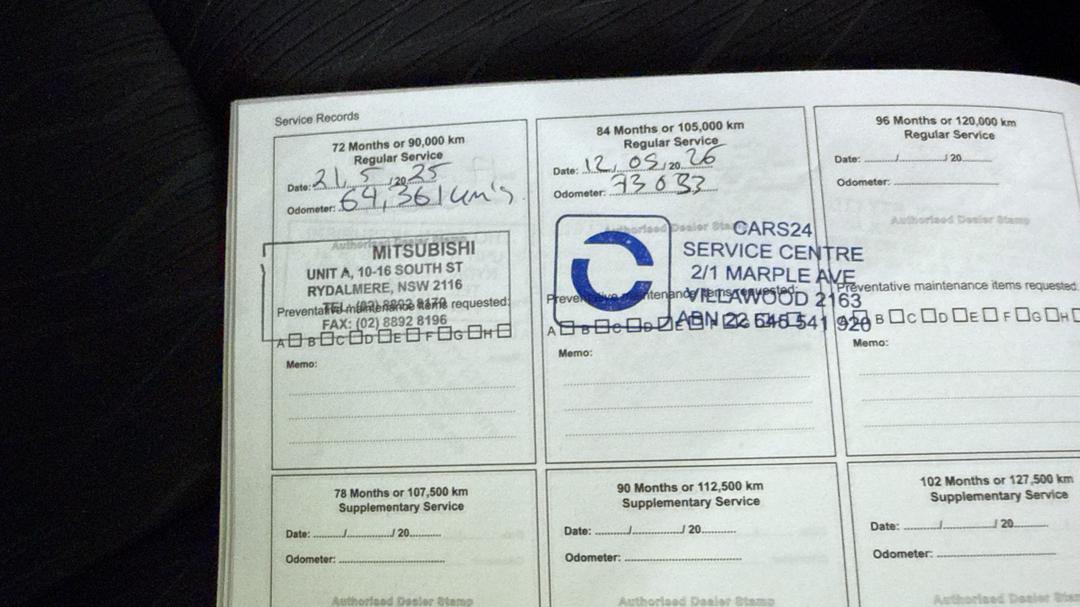 Service Records
72 Months or 90,000 km
Regular Service
Date: 21, 5 /20 25
Odometer: 64,361 km's
Authorised Dealer Stamp
MITSUBISHI
UNIT A, 10-16 SOUTH ST
RYDALMERE, NSW 2116
TEL: (02) 8892 8170
Preventative maintenance items requested:
FAX: (02) 8892 8196
A B C D E F G H
Memo:
84 Months or 105,000 km
Regular Service
Date: 12, 05, 20 26
Odometer: 73033
Authorised Dealer Stamp
CARS24
SERVICE CENTRE
2/1 MARPLE AVE
Preventative maintenance items requested:
VILLAWOOD 2163
ABN 22 646 541 920
A B C D E F G H
Memo:
96 Months or 120,000 km
Regular Service
Date: ....../....../ 20......
Odometer:
Authorised Dealer Stamp
Preventative maintenance items requested
A B C D E F G H
Memo:
78 Months or 107,500 km
Supplementary Service
Date: ....../....../ 20......
Odometer:
Authorised Dealer Stamp
90 Months or 112,500 km
Supplementary Service
Date: ....../....../ 20......
Odometer:
Authorised Dealer Stamp
102 Months or 127,500 km
Supplementary Service
Date: ....../....../ 20......
Odometer:
Authorised Dealer Stamp